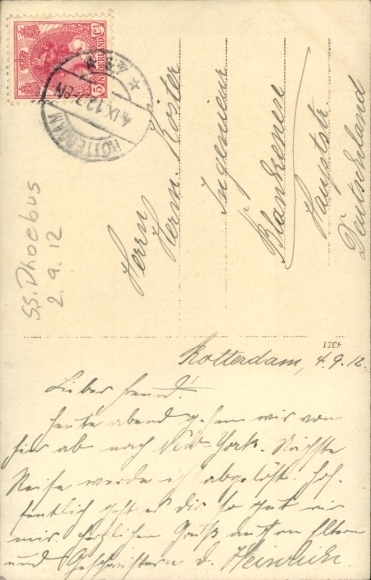 NEDERLAND
ROTTERDAM
4.IX.12.7-8N
Herrn
Herm. Köster
Ingenieur
Blankenese
Hauptstr.
Deutschland
S.S. Phoebus
2.9.12
4351
Rotterdam, 4.9.12.
Lieber Freund!
Heute abend gehen wir von
hier ab nach New-York. Nächste
Reise werde ich abgelöst. Hof-
fentlich geht es dir so gut wie
mir. Herzlichen Gruß an Eltern
und Geschwistern d. Heinrich